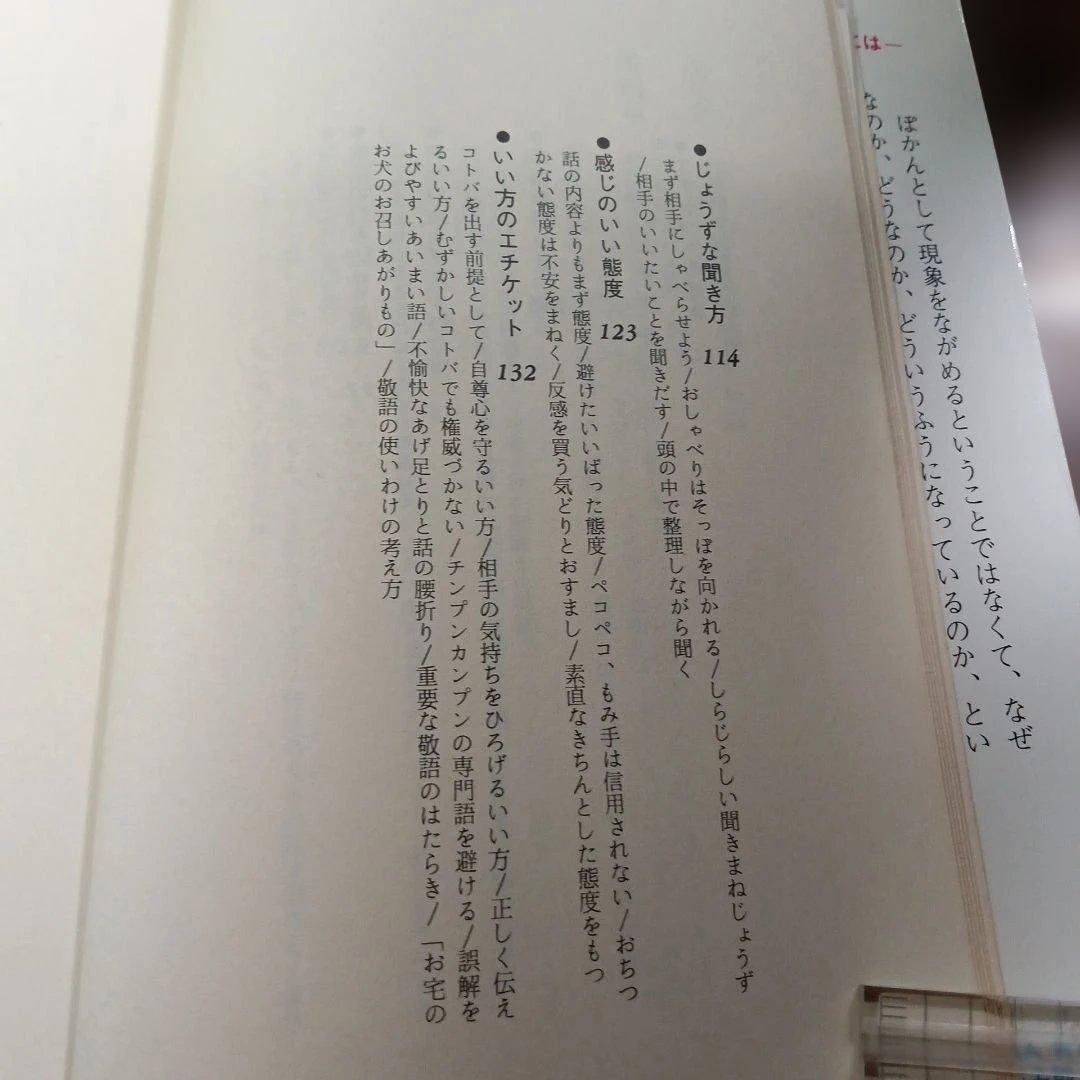 には―
ぽかんとして現象をながめるということではなくて、なぜ
なのか、どうなのか、どういうふうになっているのか、とい
●じょうずな聞き方 114
まず相手にしゃべらせよう/おしゃべりはそっぽを向かれる/しらじらしい聞きまねじょうず
/相手のいいたいことを聞きだす/頭の中で整理しながら聞く
●感じのいい態度 123
話の内容よりもまず態度/避けたいいばった態度/ペコペコ、もみ手は信用されない/おちつ
かない態度は不安をまねく/反感を買う気どりとおすまし/素直なきちんとした態度をもつ
●いい方のエチケット 132
コトバを出す前提として/自尊心を守るいい方/相手の気持ちをひろげるいい方/正しく伝え
るいい方/むずかしいコトバでも権威づかない/チンプンカンプンの専門語を避ける/誤解を
よびやすいあいまい語/不愉快なあげ足とりと話の腰折り/重要な敬語のはたらき/「お宅の
お犬のお召しあがりもの」/敬語の使いわけの考え方